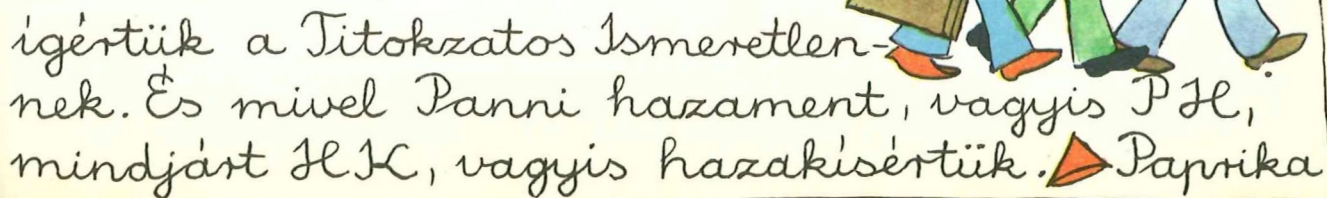 igértük a Titokzatos Ismeretlen-
nek. És mivel Panni hazament, vagyis PH,
mindjárt HK, vagyis hazakísértük. Paprika